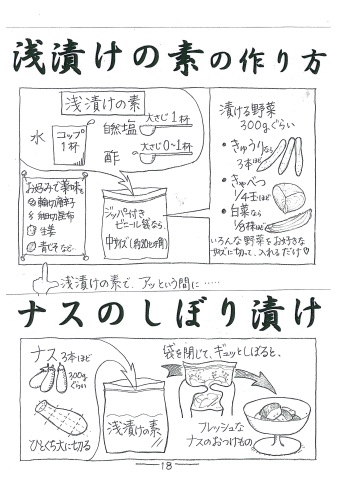 浅漬けの素の作り方
浅漬けの素
水
コップ
1杯
自然塩
大さじ1杯
酢
大さじ0〜1杯
お好みで薬味
輪切唐辛子
細切昆布
生姜
青じそなど…
ジッパー付き
ビニール袋なら、
中サイズ
漬ける野菜
300gぐらい
・きゅうりなら
3本ほど
・きゃべつ
1/4玉ほど
・白菜なら
1/8株ほど
いろんな野菜をお好きな
サイズに切って、入れるだけ♡
浅漬けの素で、アッという間に……
ナスのしぼり漬け
ナス3本ほど
300g
ぐらい
ひとくち大に切る
浅漬けの素
袋を閉じて、ギュッとしぼると、
フレッシュな
ナスのおつけもの
18